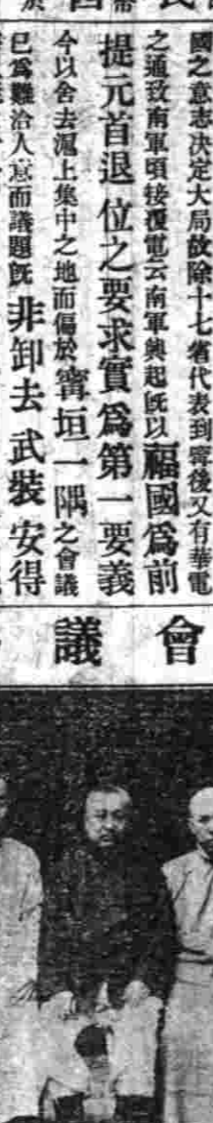 國之意志决定大局故除十七省代表到寗後又有華電
之通致南軍頃接覆電云南軍興起旣以福國爲前
提元首退位之要求實爲第一要義
今以舍去滬上集中之地而偏於寗垣一隅之會議
已爲難洽人意而議題旣非卸去武裝安得
會議